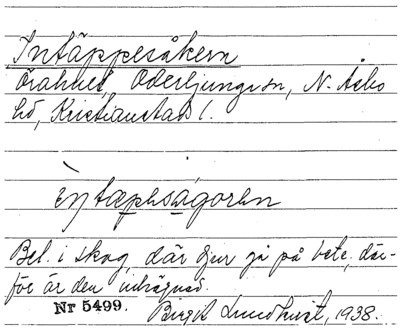 Intäppesåkern
Örahult, Oderljunga sn, N. Åsbo
hd, Kristianstads l.
ìntæpesågoren
Bel. i skog, där djur gå på bete, där-
för är den inhägnad.
Nr 5499. Birgit Lundkvist, 1938.